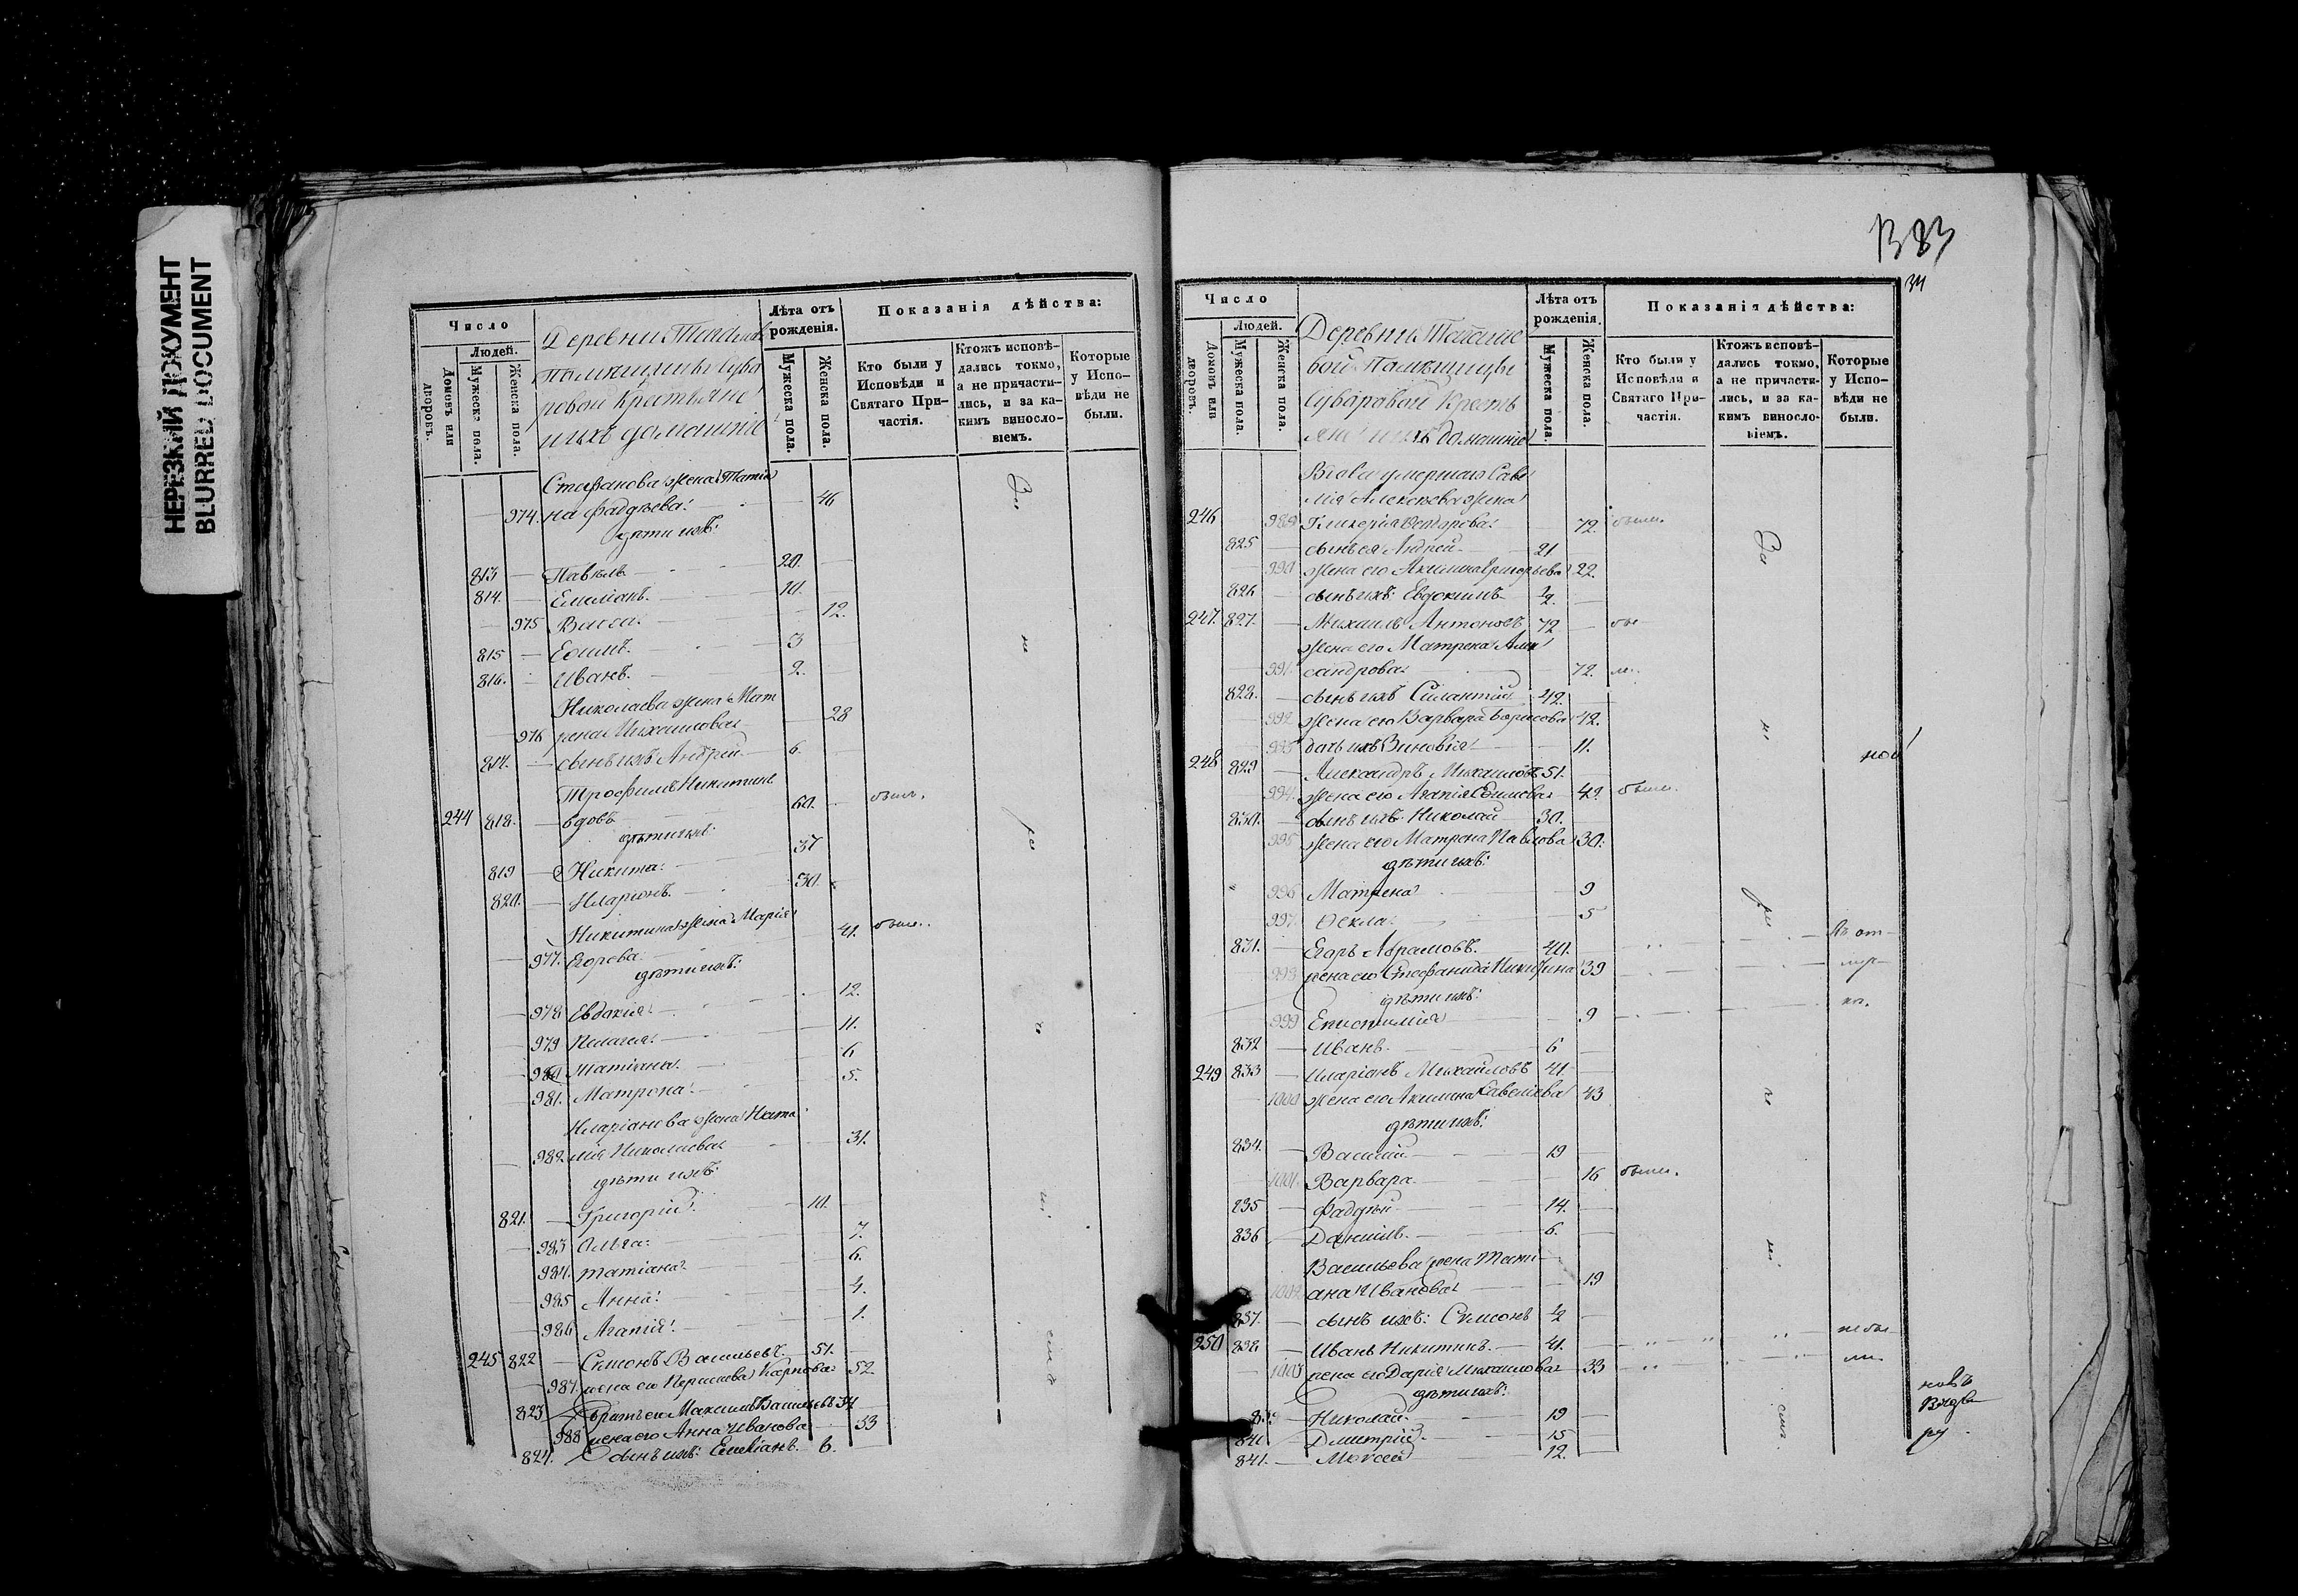 НЕРЕЗКИЙ ДОКУМЕНТ
BLURRED DOCUMENT
Число
Людей.
Домовъ или дворовъ.
Мужеска пола.
Женска пола.
Деревни
помѣщицы Суво
ровой Крестьяне
и ихъ домашніе
Лѣта отъ рожденія.
Мужеска пола.
Женска пола.
Показанія дѣйства:
Кто были у Исповѣди и Святаго Причастія.
Ктожъ исповѣдались токмо, а не причастились, и за какимъ винословіемъ.
Которые у Исповѣди не были.
Стефанова жена Татія
974. на Фадѣева 46
дѣти ихъ:
813 Павелъ 20.
814. Емеліанъ. 10.
975 Васса. 12.
815 Ефимъ. 3
816. Иванъ. 2.
Николаева жена Мат
976 рена Михайлова 28
817. сынъ ихъ Андрей 6.
Трофимъ Никитинъ
244 818. вдовъ 60. былъ.
дѣти ихъ:
819 Никита 37
820. Иларіонъ. 30.
Никитина жена Марія
977. Егорова 41. были.
дѣти ихъ:
978 Евдокія 12.
979 Пелагея 11.
980 Татіана 6
981. Матрона 5.
Иларіонова жена Ната
982 лія Николаева 31.
дѣти ихъ:
821. Григорій 10.
983 Ольга 7.
984. Татіана 6.
985 Анна 4.
986 Агапія 1.
245 822 Симонъ Васильевъ. 51.
987. жена его Карпова 52.
823 братъ его Максимъ Васильевъ 54
988 жена его Анна Иванова 53
824. сынъ ихъ: Емеліанъ. 6.
За
не
ра
че
ні
емъ
1383
34
Число
Людей.
Домовъ или дворовъ.
Мужеска пола.
Женска пола.
Деревни
вой Помѣщицы
Суваровой Кресть
яне и ихъ домашніе
Лѣта отъ рожденія.
Мужеска пола.
Женска пола.
Показанія дѣйства:
Кто были у Исповѣди и Святаго Причастія.
Ктожъ исповѣдались токмо, а не причастились, и за какимъ винословіемъ.
Которые у Исповѣди не были.
Вдова умершаго Саве
лія Алексѣева жена
246 989 Гликерія 72. были.
825 сынъ ея Андрей 21.
990 жена его Акилина Григорьева 22.
826 сынъ ихъ: Евдокимъ ½.
247. 827. Михаилъ Антоновъ 72 бы
жена его Матрена Алек
991. сандрова 72. ли.
828. сынъ ихъ Силантій 42.
992. жена его Варвара Борисова 42.
993 дочь ихъ Зиновія 11.
248 829 Александръ Михайловъ 51.
994. жена его Агапія Ефимова 49 были.
830. сынъ ихъ Николай 30.
995 жена его Матрона Павлова 30.
дѣти ихъ:
996 Матрена 9
997. Ѳекла 5
831. Егоръ Абрамовъ. 40. Въ от
998 жена его Стефанида Никитина 39
дѣти ихъ:
999 Епистимія 9
832 Иванъ. 6
249 833 Иларіонъ Михайловъ 41.
1000 жена его Акилина Савельева 43
дѣти ихъ:
834. Василій 19
1001. Варвара 16 были.
835 Фадѣй 14.
836 Даніилъ 6.
Васильева жена Тати
1002 ана Иванова 19
837. сынъ ихъ: Симонъ ½
250 838 Иванъ Никитинъ. 41. не бы
1003 жена его Дарія Михайлова 33 ли
дѣти ихъ:
839 Николай 19
840 Дмитрій 15
841. Моѵсей 12.
За
не
ра
че
ні
емъ.